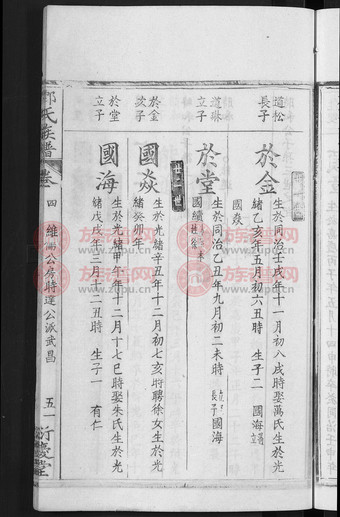 道松長子
於金
生於同治壬戌年十一月初八戌時娶萬氏生於光
緒乙亥年五月初六丑時 生子二 國海立嗣
國焱
道琳立子
於堂
生於同治乙丑年九月初二未時
國纘 長子國海
廿二世
於金次子
國焱
生於光緒辛丑年十二月初七亥時聘徐女生於光
緒癸卯年
於堂立子
國海
生於光緒甲午年十二月十七巳時娶朱氏生於光
緒戊戌年二月十二丑時 生子一 有仁
氏族譜
卷四
維甯公房時達公派武昌
五一
族谱网
www.zupu.cn